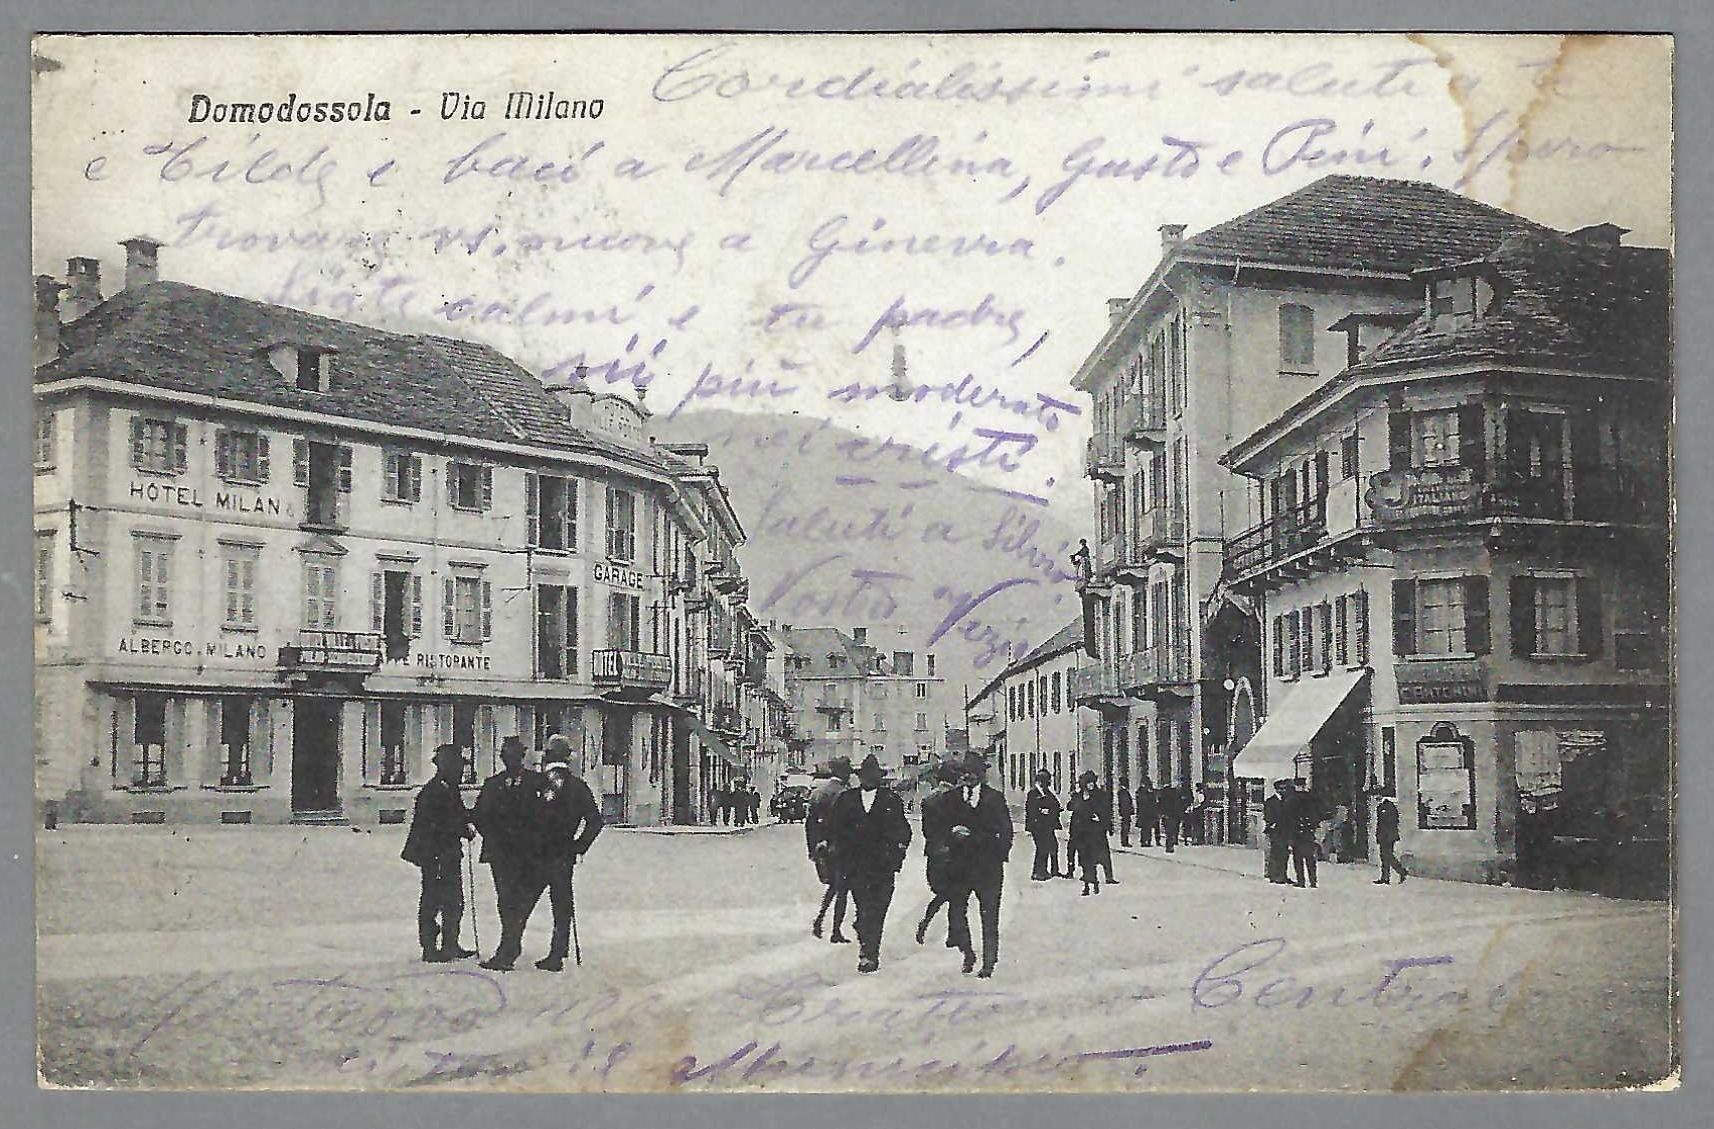 Domodossola - Via Milano
Cordialissimi saluti a te
e Tilde e baci a Marcellina, Gusto e Pini. Spero
trovare vs. nuove a Ginevra.
Siate calmi e tu padre,
sii più moderato
nei cristi.
Saluti a Silvio
Vostro
HÔTEL MILAN
GARAGE
ALBERGO MILANO
RISTORANTE
Trattoria Centrale
il